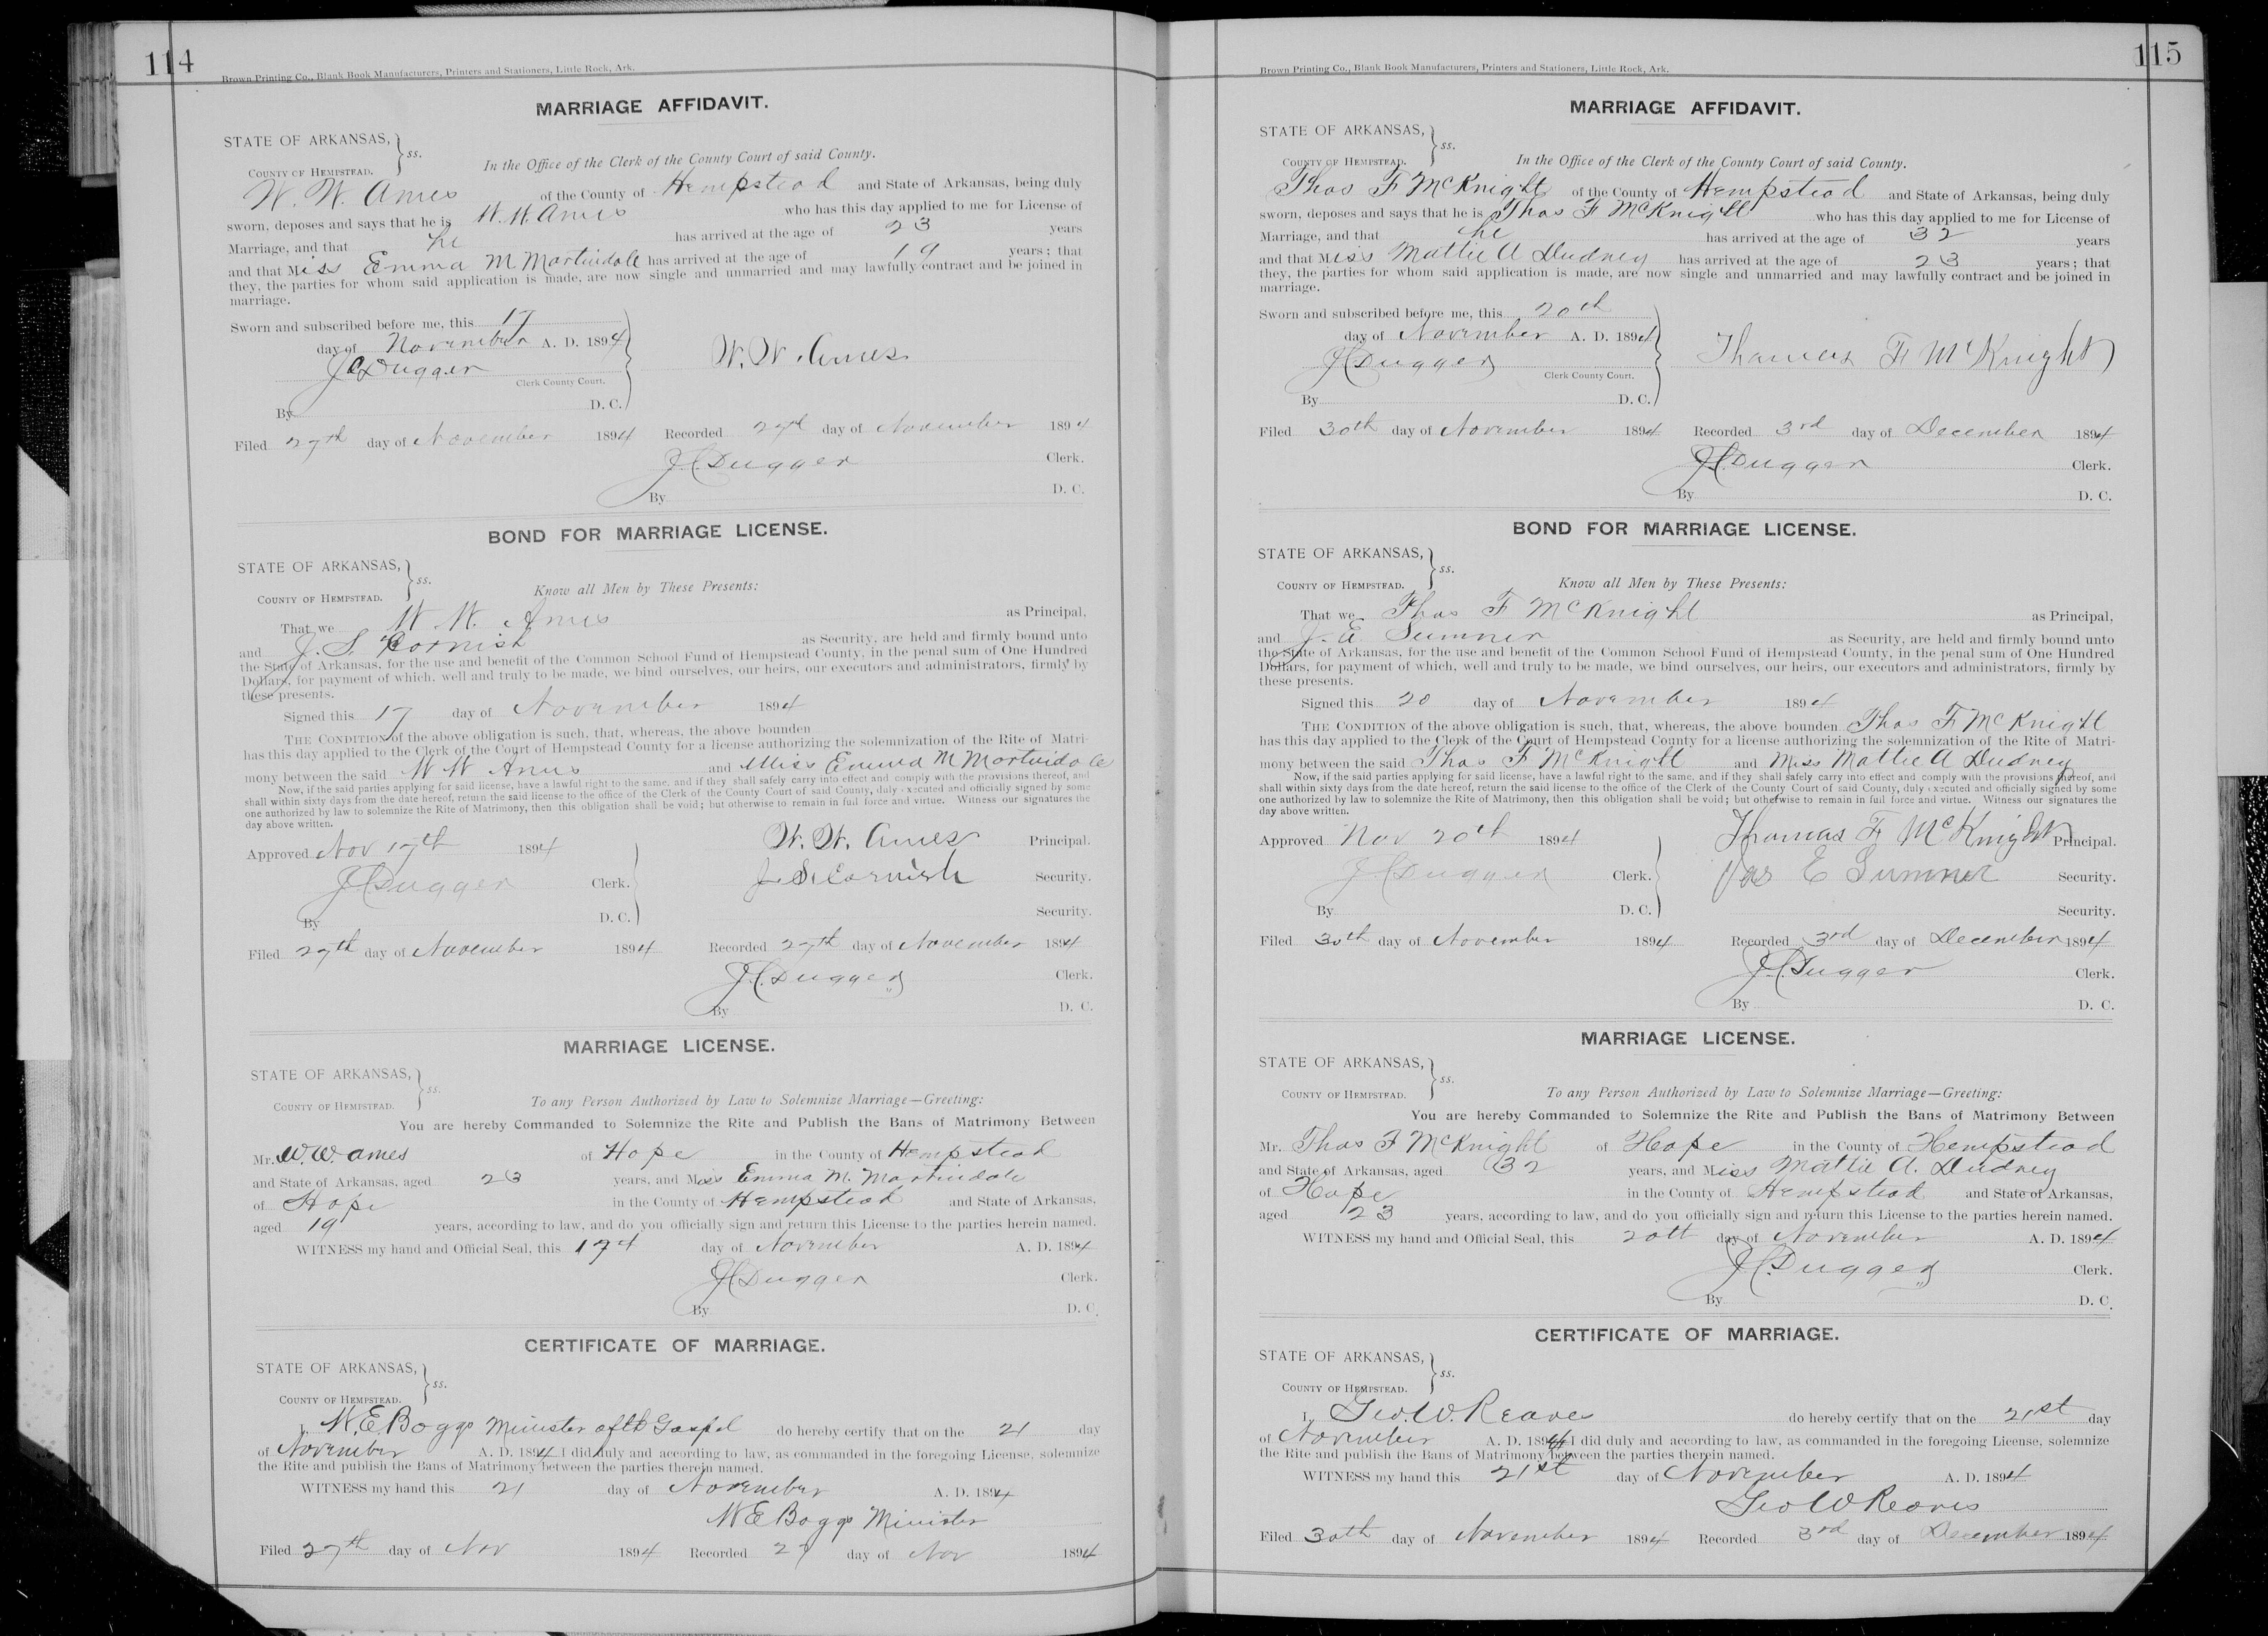 114
Brown Printing Co., Blank Book Manufacturers, Printers and Stationers, Little Rock, Ark.
MARRIAGE AFFIDAVIT.
STATE OF ARKANSAS, } ss.
COUNTY OF HEMPSTEAD. In the Office of the Clerk of the County Court of said County.
W. W. Ames of the County of Hempstead and State of Arkansas, being duly
sworn, deposes and says that he is W. W. Ames who has this day applied to me for License of
Marriage, and that he has arrived at the age of 23 years
and that Miss Emma M Martindale has arrived at the age of 19 years; that
they, the parties for whom said application is made, are now single and unmarried and may lawfully contract and be joined in
marriage.
Sworn and subscribed before me, this 17
day of November A. D. 1894
J C Dugger W. W. Ames
Clerk County Court.
By D. C.
Filed 27th day of November 1894 Recorded 27th day of November 1894
J C Dugger Clerk.
By D. C.
BOND FOR MARRIAGE LICENSE.
STATE OF ARKANSAS, } ss.
COUNTY OF HEMPSTEAD. Know all Men by These Presents:
That we W. W. Ames as Principal,
and J. S. Cornish as Security, are held and firmly bound unto
the State of Arkansas, for the use and benefit of the Common School Fund of Hempstead County, in the penal sum of One Hundred
Dollars, for payment of which, well and truly to be made, we bind ourselves, our heirs, our executors and administrators, firmly by
these presents.
Signed this 17 day of November 1894
THE CONDITION of the above obligation is such, that, whereas, the above bounden
has this day applied to the Clerk of the Court of Hempstead County for a license authorizing the solemnization of the Rite of Matri-
mony between the said W W Ames and Miss Emma M Martindale
Now, if the said parties applying for said license, have a lawful right to the same, and if they shall safely carry into effect and comply with the provisions thereof, and
shall within sixty days from the date hereof, return the said license to the office of the Clerk of the County Court of said County, duly executed and officially signed by some
one authorized by law to solemnize the Rite of Matrimony, then this obligation shall be void; but otherwise to remain in full force and virtue. Witness our signatures the
day above written.
Approved Nov 17th 1894 W. W. Ames Principal.
J C Dugger Clerk. J. S. Cornish Security.
By D. C. Security.
Filed 27th day of November 1894 Recorded 27th day of November 1894
J. C. Dugger Clerk.
By D. C.
MARRIAGE LICENSE.
STATE OF ARKANSAS, } ss.
COUNTY OF HEMPSTEAD. To any Person Authorized by Law to Solemnize Marriage—Greeting:
You are hereby Commanded to Solemnize the Rite and Publish the Bans of Matrimony Between
Mr. W. W. Ames of Hope in the County of Hempstead
and State of Arkansas, aged 23 years, and Miss Emma M. Martindale
of Hope in the County of Hempstead and State of Arkansas,
aged 19 years, according to law, and do you officially sign and return this License to the parties herein named.
WITNESS my hand and Official Seal, this 17th day of November A. D. 1894
J C Dugger Clerk.
By D. C.
CERTIFICATE OF MARRIAGE.
STATE OF ARKANSAS, } ss.
COUNTY OF HEMPSTEAD.
I, W. E. Boggs Minister of th Gospel do hereby certify that on the 21 day
of November A. D. 1894 I did duly and according to law, as commanded in the foregoing License, solemnize
the Rite and publish the Bans of Matrimony between the parties therein named.
WITNESS my hand this 21 day of November A. D. 1894
W E Boggs Minister
Filed 27th day of Nov 1894 Recorded 27 day of Nov 1894
115
Brown Printing Co., Blank Book Manufacturers, Printers and Stationers, Little Rock, Ark.
MARRIAGE AFFIDAVIT.
STATE OF ARKANSAS, } ss.
COUNTY OF HEMPSTEAD. In the Office of the Clerk of the County Court of said County.
Thos F McKnight of the County of Hempstead and State of Arkansas, being duly
sworn, deposes and says that he is Thos F McKnight who has this day applied to me for License of
Marriage, and that he has arrived at the age of 32 years
and that Miss Mattie A Dudney has arrived at the age of 23 years; that
they, the parties for whom said application is made, are now single and unmarried and may lawfully contract and be joined in
marriage.
Sworn and subscribed before me, this 20th
day of November A. D. 1894
J C Dugger Thomas F McKnight
Clerk County Court.
By D. C.
Filed 30th day of November 1894 Recorded 3rd day of December 1894
J C Dugger Clerk.
By D. C.
BOND FOR MARRIAGE LICENSE.
STATE OF ARKANSAS, } ss.
COUNTY OF HEMPSTEAD. Know all Men by These Presents:
That we Thos F McKnight as Principal,
and J. E Sumner as Security, are held and firmly bound unto
the State of Arkansas, for the use and benefit of the Common School Fund of Hempstead County, in the penal sum of One Hundred
Dollars, for payment of which, well and truly to be made, we bind ourselves, our heirs, our executors and administrators, firmly by
these presents.
Signed this 20 day of November 1894
THE CONDITION of the above obligation is such, that, whereas, the above bounden Thos F McKnight
has this day applied to the Clerk of the Court of Hempstead County for a license authorizing the solemnization of the Rite of Matri-
mony between the said Thos F McKnight and Miss Mattie A Dudney
Now, if the said parties applying for said license, have a lawful right to the same, and if they shall safely carry into effect and comply with the provisions thereof, and
shall within sixty days from the date hereof, return the said license to the office of the Clerk of the County Court of said County, duly executed and officially signed by some
one authorized by law to solemnize the Rite of Matrimony, then this obligation shall be void; but otherwise to remain in full force and virtue. Witness our signatures the
day above written.
Approved Nov 20th 1894 Thomas F McKnight Principal.
J. C Dugger Clerk. Jas E Sumner Security.
By D. C. Security.
Filed 30th day of November 1894 Recorded 3rd day of December 1894
J. C Dugger Clerk.
By D. C.
MARRIAGE LICENSE.
STATE OF ARKANSAS, } ss.
COUNTY OF HEMPSTEAD. To any Person Authorized by Law to Solemnize Marriage—Greeting:
You are hereby Commanded to Solemnize the Rite and Publish the Bans of Matrimony Between
Mr. Thos F McKnight of Hope in the County of Hempstead
and State of Arkansas, aged 32 years, and Miss Mattie A. Dudney
of Hope in the County of Hempstead and State of Arkansas,
aged 23 years, according to law, and do you officially sign and return this License to the parties herein named.
WITNESS my hand and Official Seal, this 20th day of November A. D. 1894
J C. Dugger Clerk.
By D. C.
CERTIFICATE OF MARRIAGE.
STATE OF ARKANSAS, } ss.
COUNTY OF HEMPSTEAD.
I, Geo. W. Reaves do hereby certify that on the 21st day
of November A. D. 1894 I did duly and according to law, as commanded in the foregoing License, solemnize
the Rite and publish the Bans of Matrimony between the parties therein named.
WITNESS my hand this 21st day of November A. D. 1894
Geo W Reaves
Filed 30th day of November 1894 Recorded 3rd day of December 1894